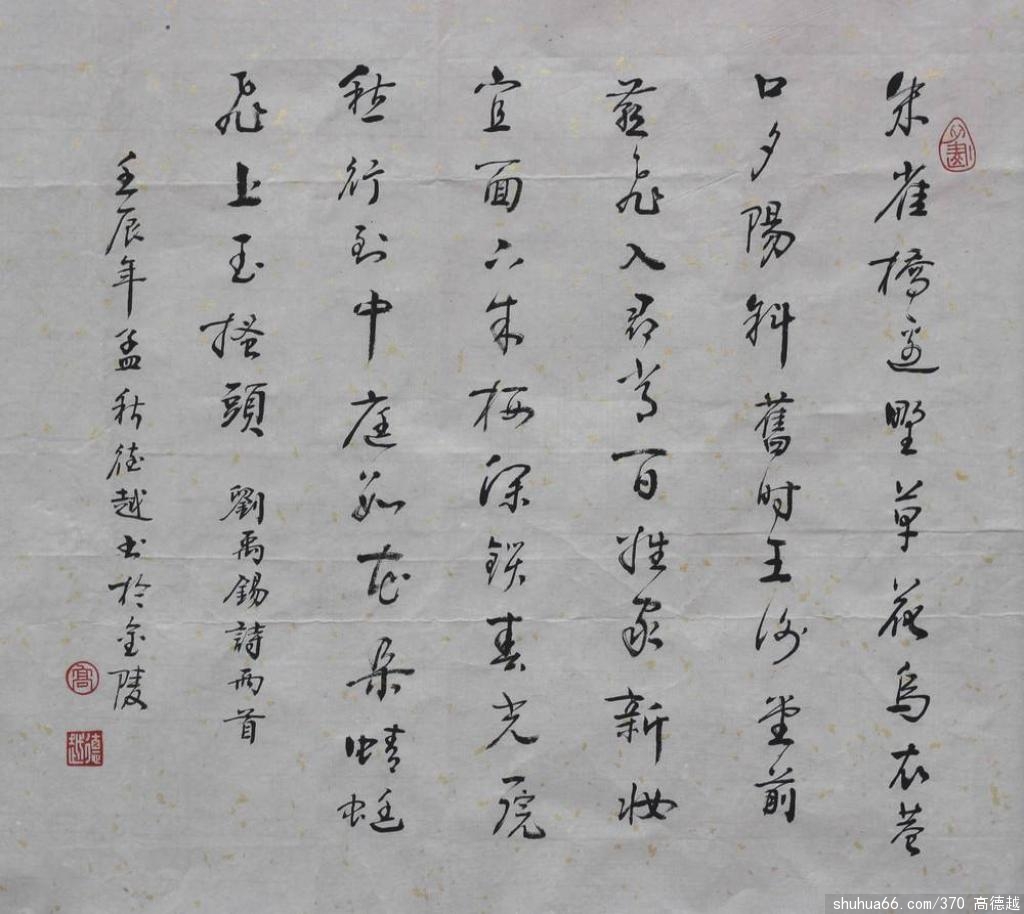 朱雀橋邊野草花烏衣巷
口夕陽斜舊时王謝堂前
燕飛入尋常百姓家新妝
宜面下朱樓深鎖春光一院
愁行到中庭數花朵蜻蜓
飛上玉搔頭 劉禹錫詩兩首
壬辰年孟秋德越書於金陵
高
德越
shuhua66.com/370 高德越